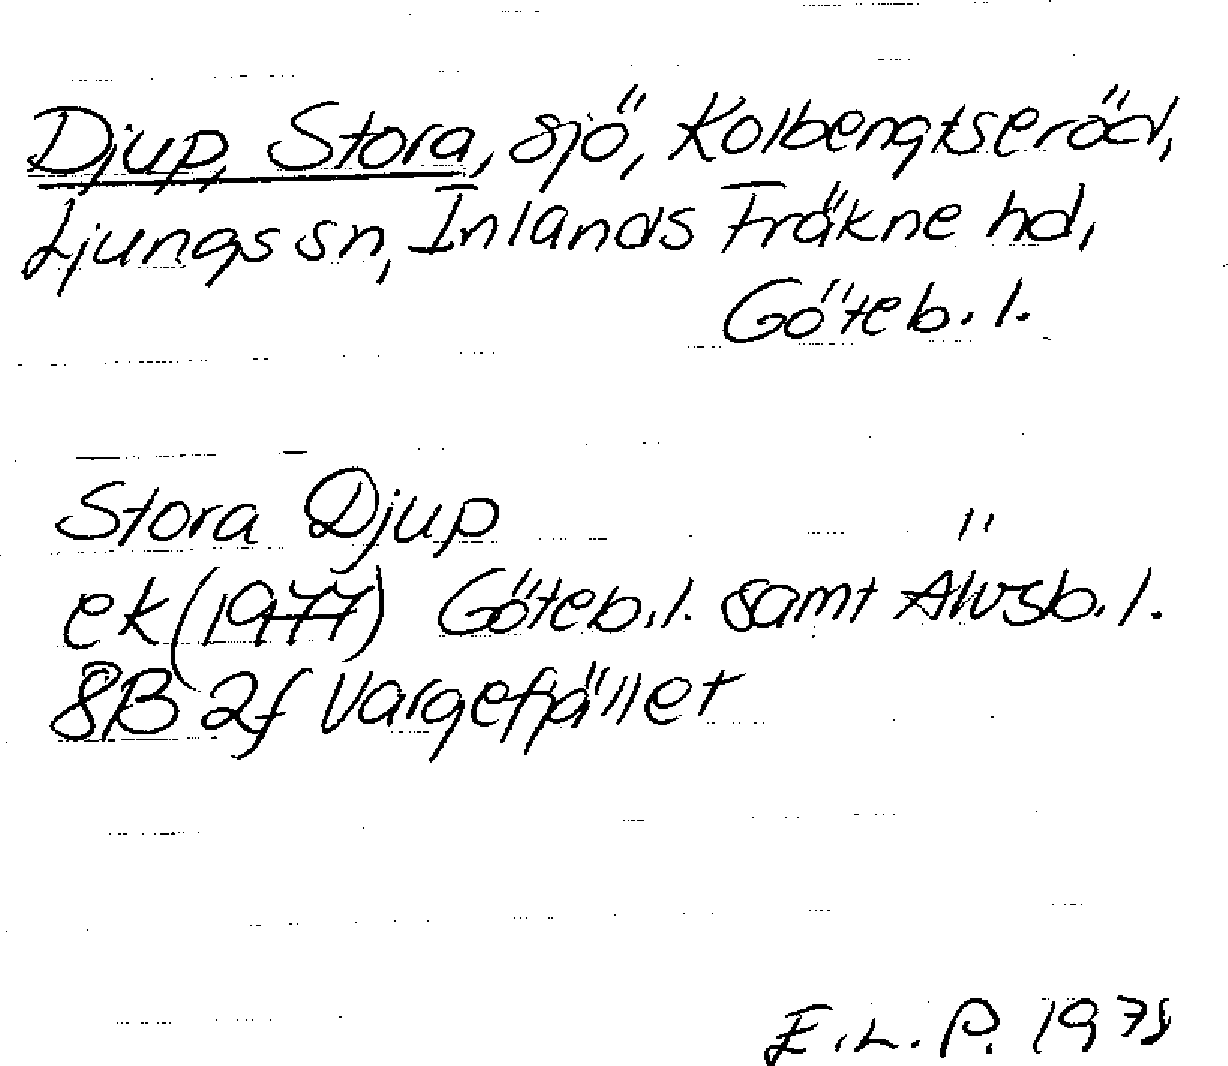 Djup, Stora, sjö, Kolbengtseröd,
Ljungs sn, Inlands Fräkne hd,
Göteb. l.
Stora Djup
ek (1977) Göteb. l. samt Älvsb. l.
8B 2f Vargefjället
E. L. P. 1978